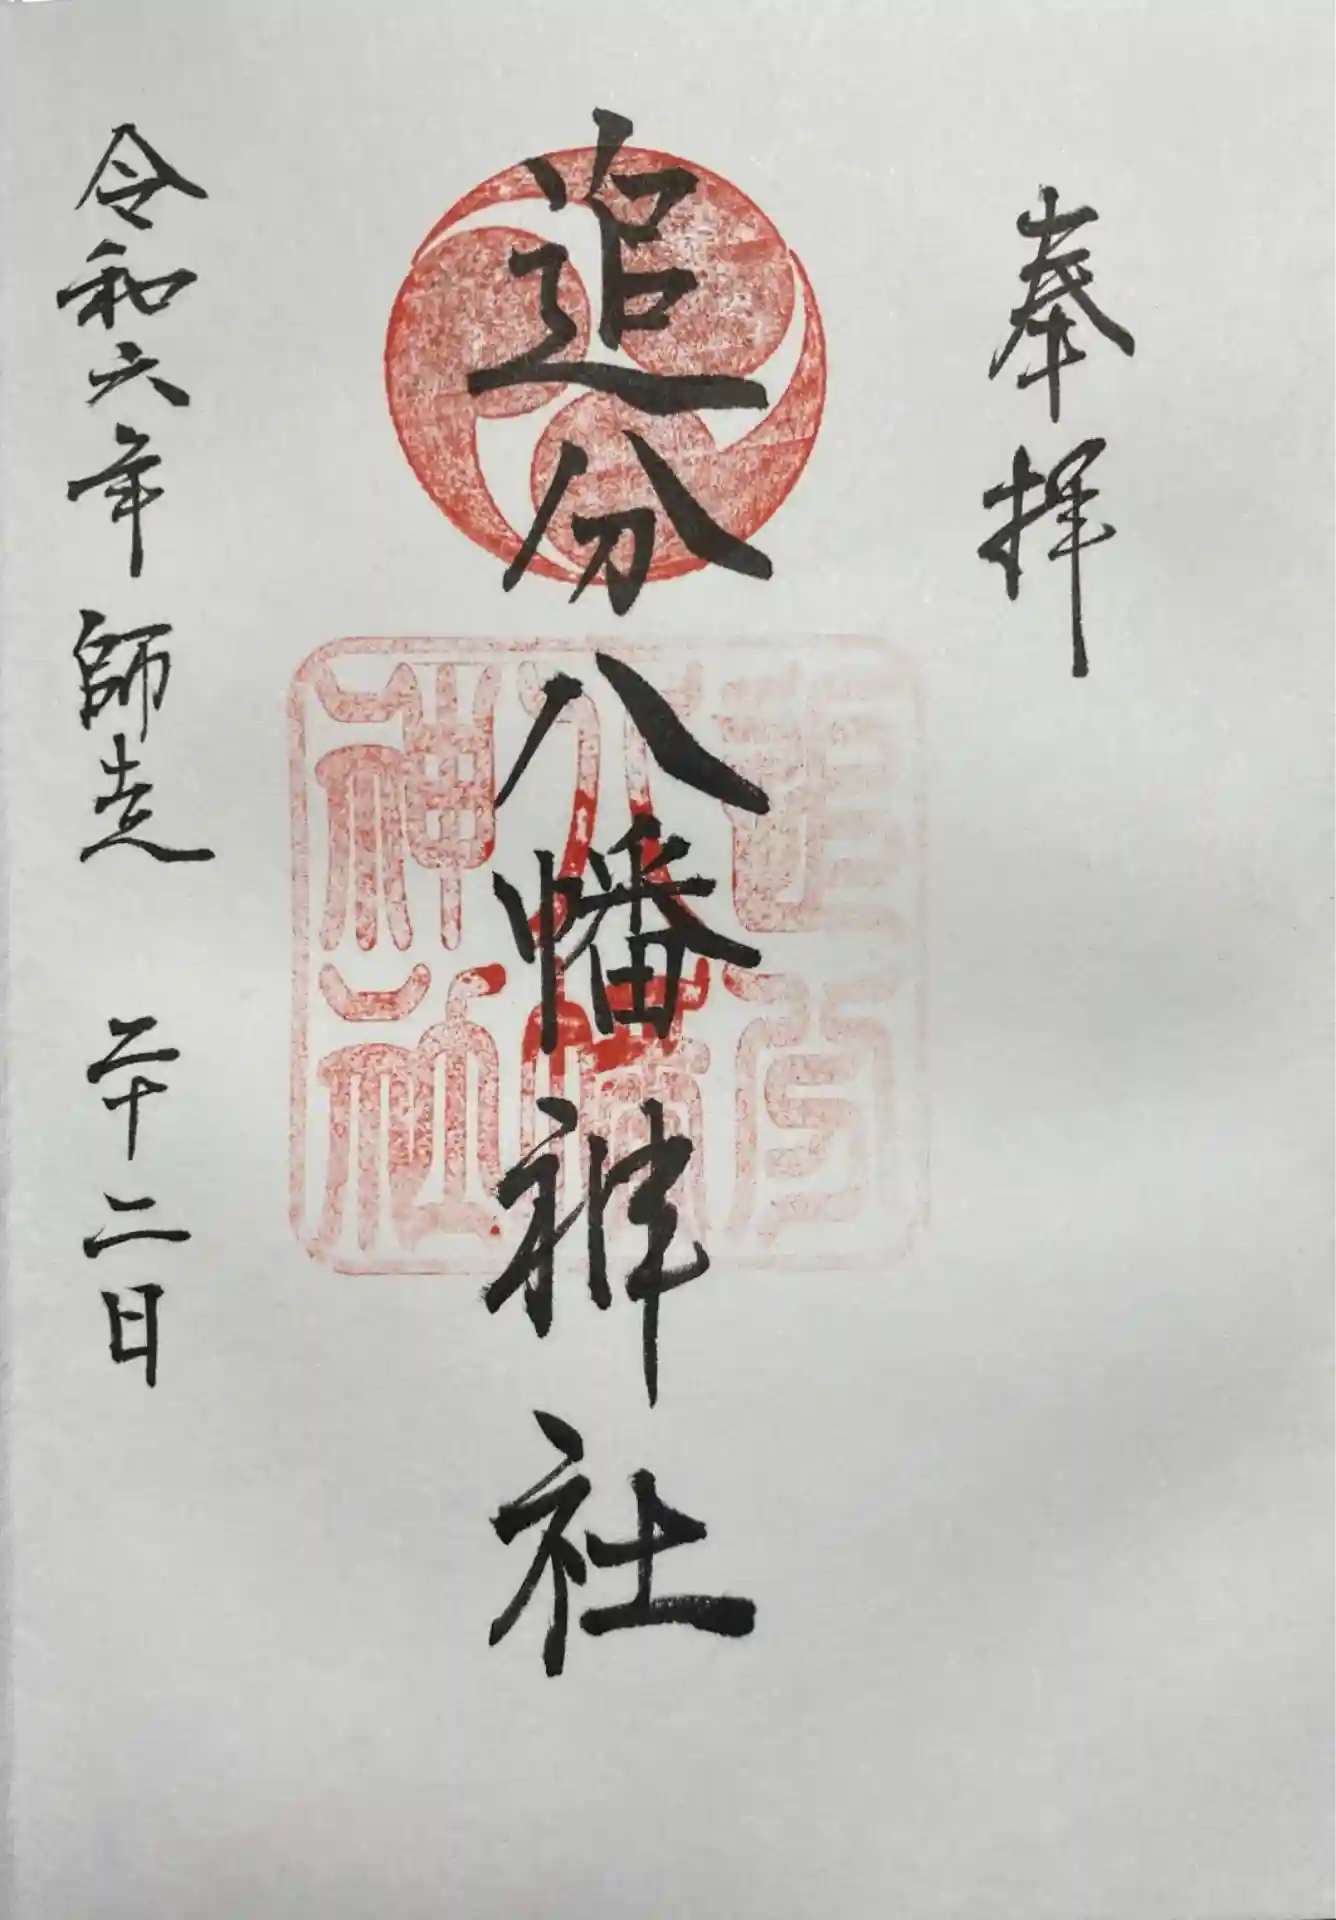 奉拝
追分八幡神社
追分八幡神社
令和六年師走二十二日